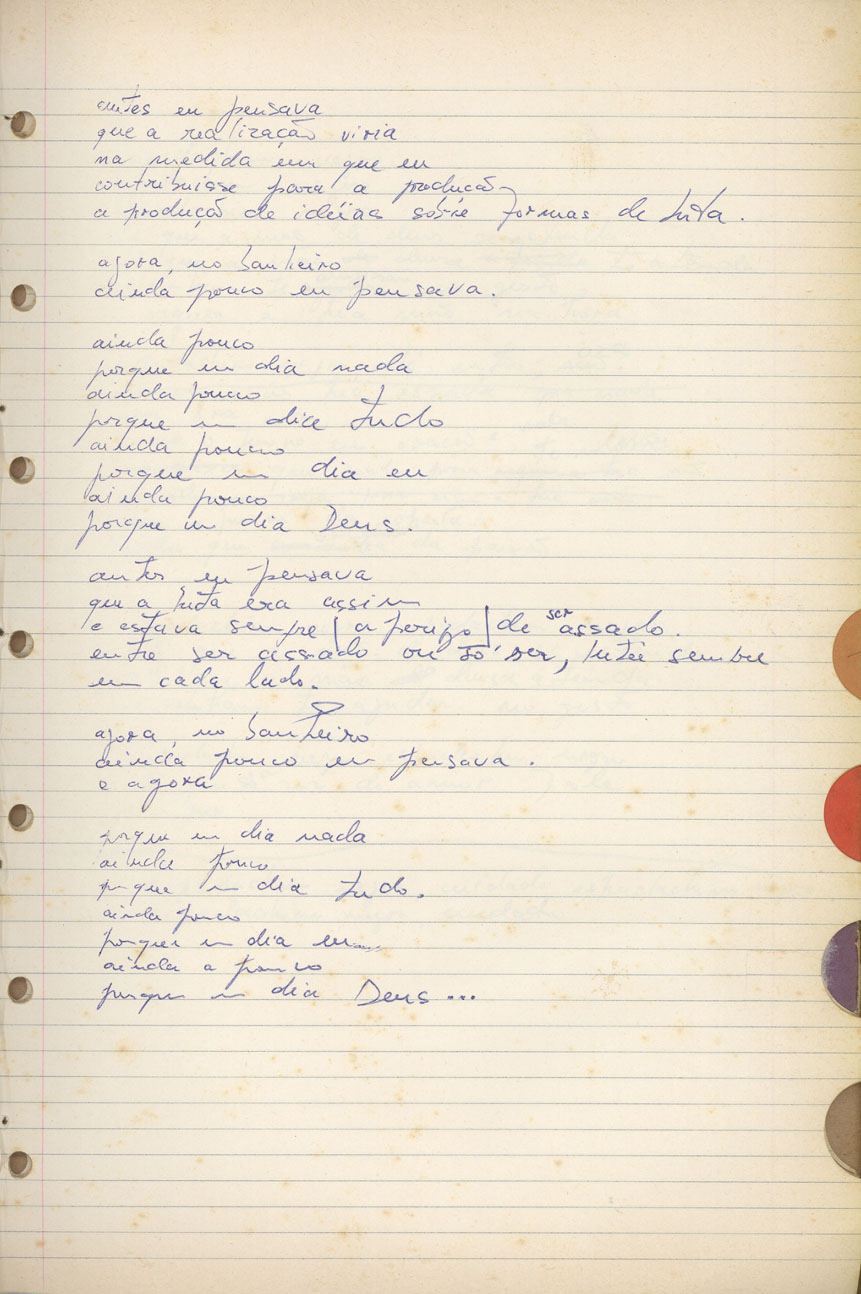 antes eu pensava
que a realização viria
na medida em que eu
contribuisse para a produção
a produção de idéias sôbre formas de luta.
agora, no banheiro
ainda pouco eu pensava.
ainda pouco
porque um dia nada
ainda pouco
porque um dia tudo
ainda pouco
porque um dia eu
ainda pouco
porque um dia Deus.
antes eu pensava
que a luta era assim
e estava sempre | a perigo | de ser assado.
entre ser assado ou só ser, lutei sempre
em cada lado.
agora, no banheiro
ainda pouco eu pensava.
e agora
porque um dia nada
ainda pouco
porque um dia tudo.
ainda pouco
porque um dia eu...
ainda a pouco
porque um dia Deus...